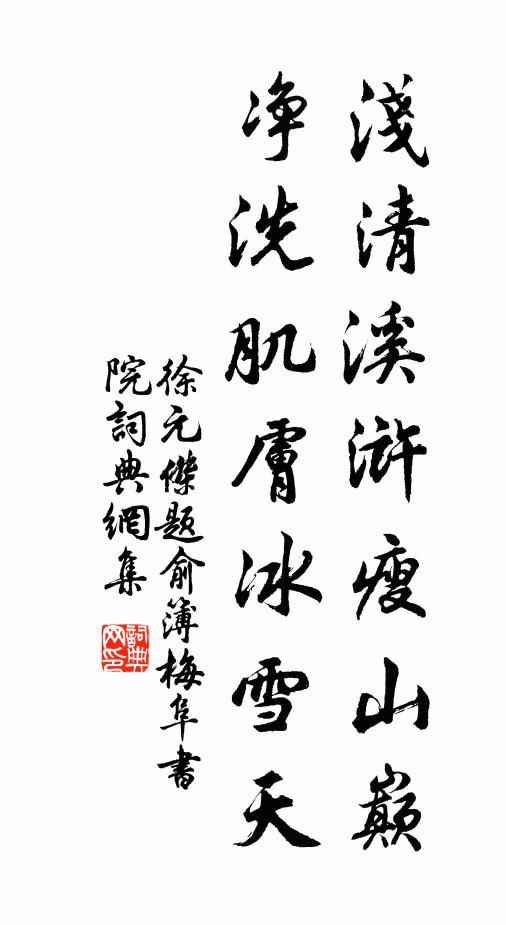 淺清溪滸瘦山巔
净洗肌膚冰雪天
徐元傑題俞簿梅阜書
院詞典網集
詞典
网印